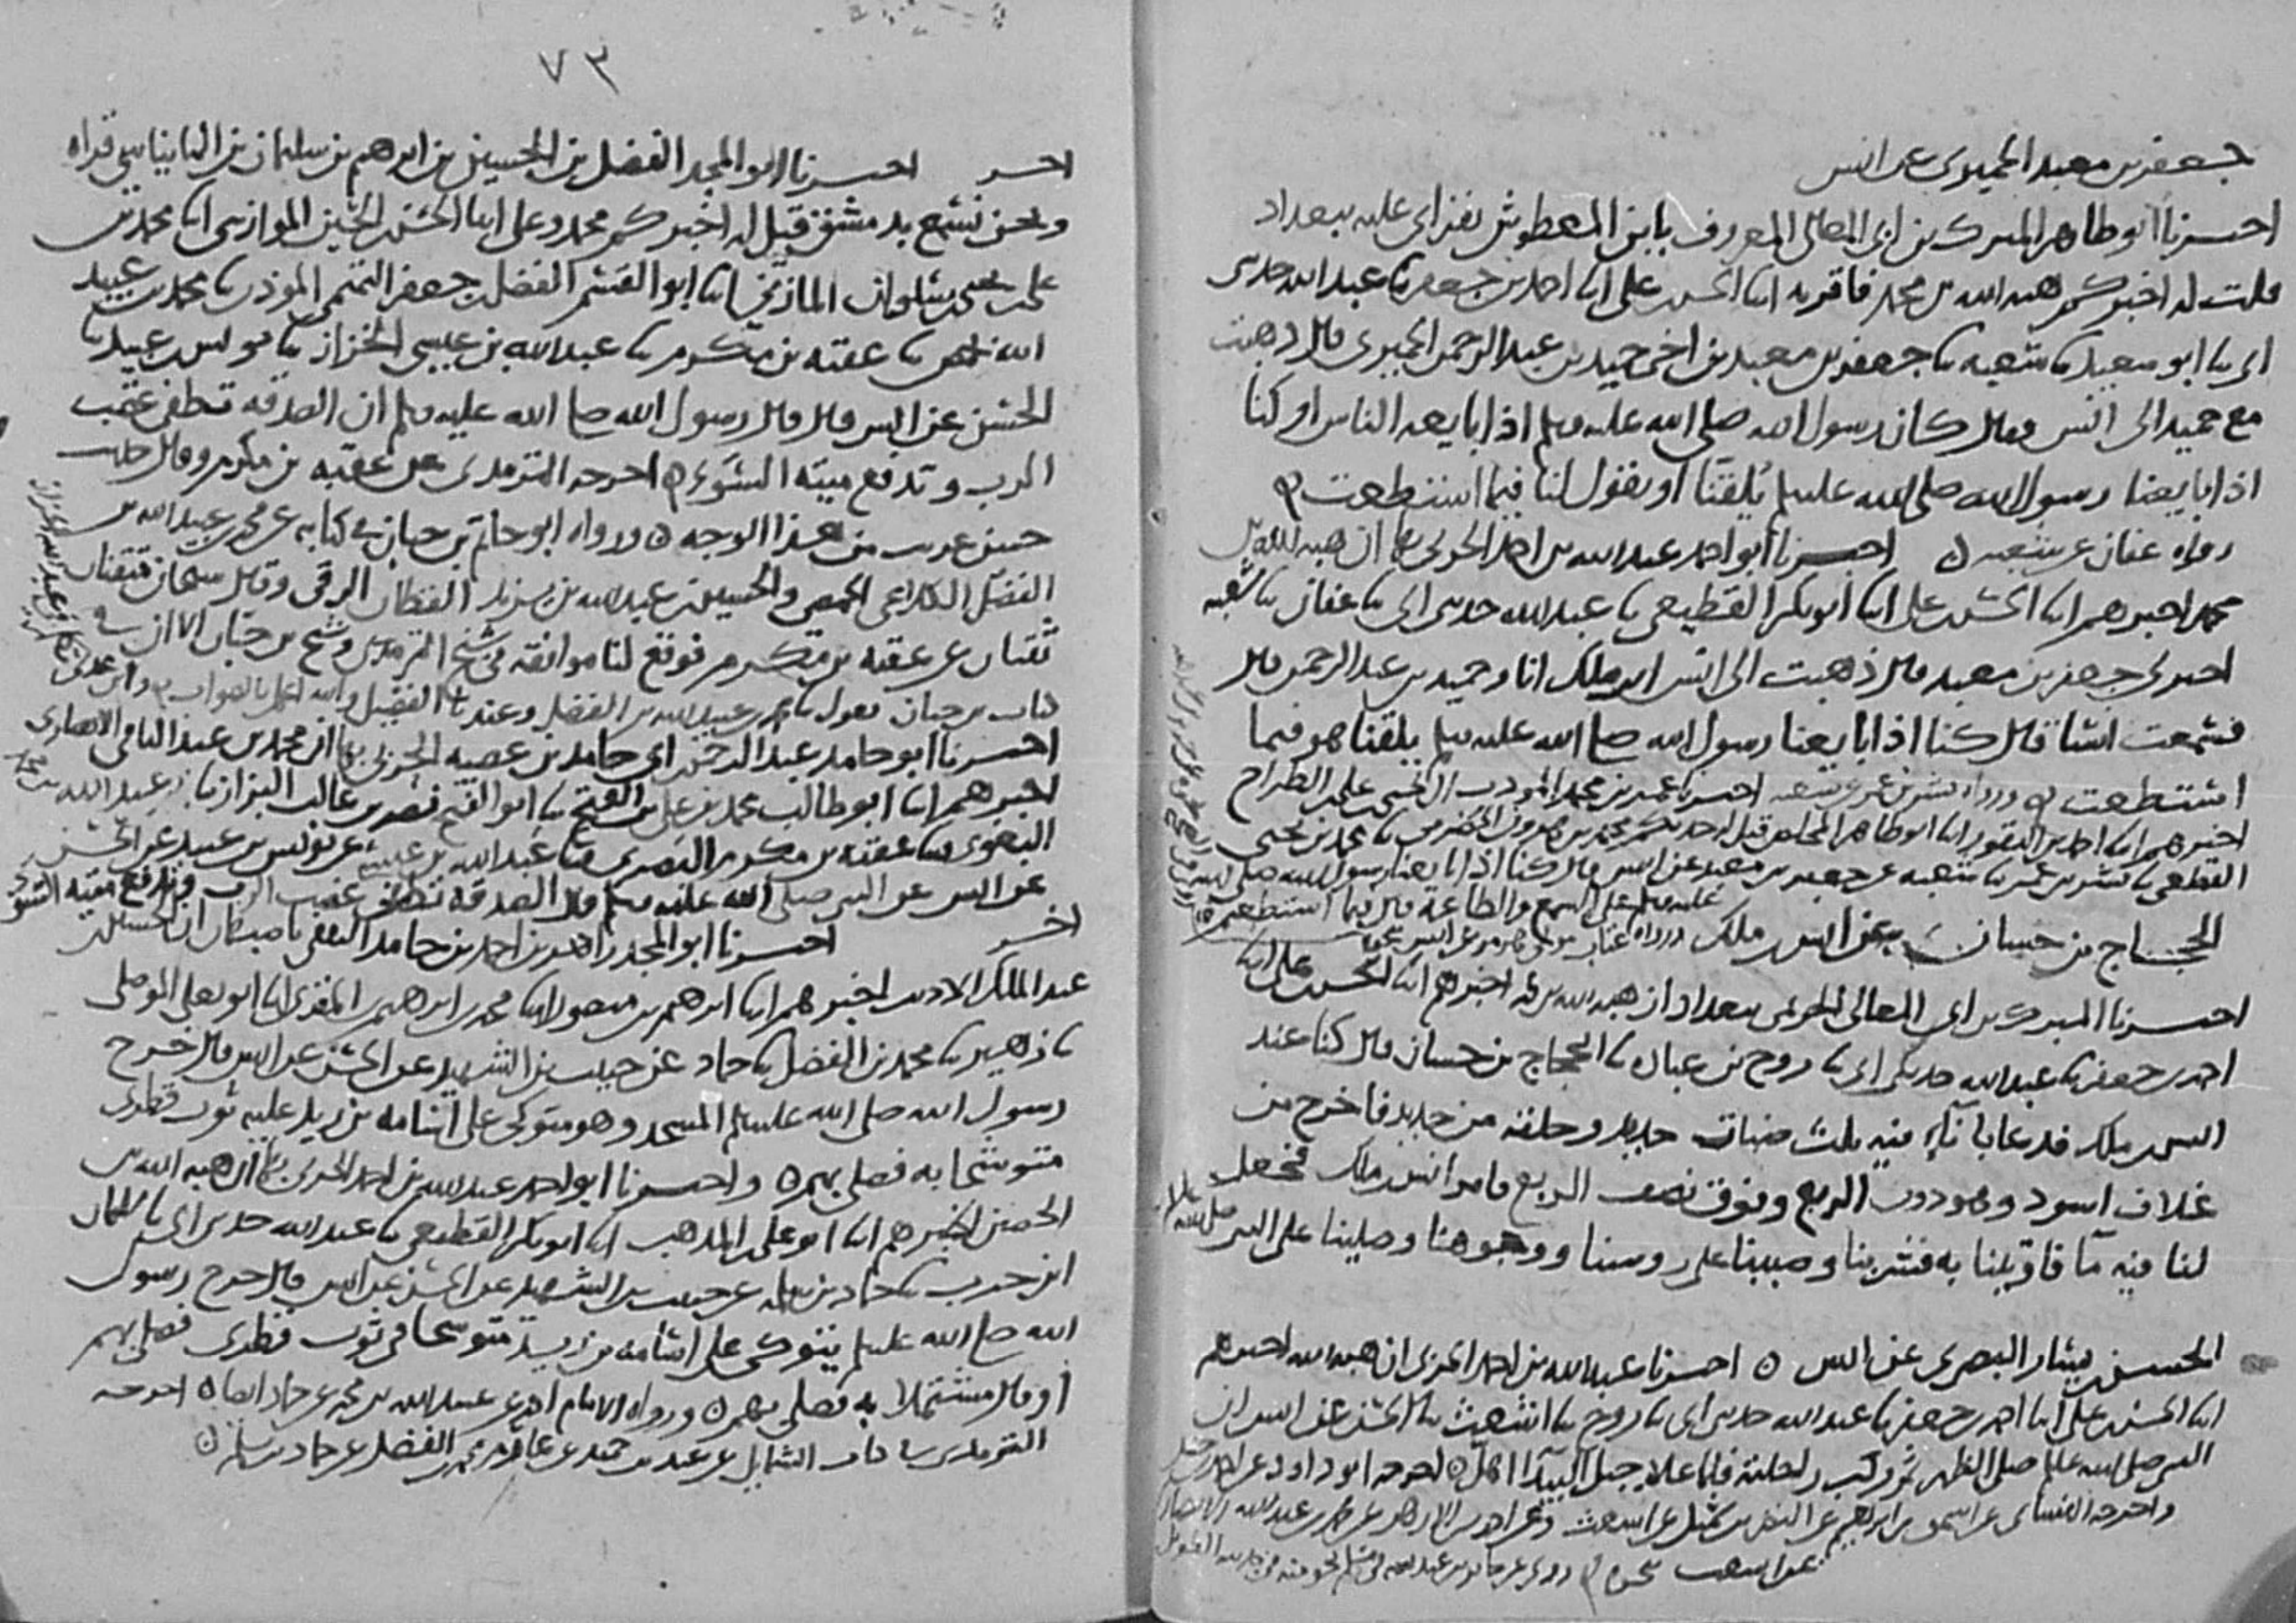 جعفر بن معبد الحميري عن انس
اخبرنا ابو طاهر المبرك بن ابي المعالي المعروف بابن المعطوش بقراتي عليه ببغداد
قلت له اخبركم هبه الله بن محمد فاقر به ابنا الحسن بن علي ابنا احمد بن جعفر ثنا عبد الله حدثني
ابي ثنا ابو سعيد ثنا شعبه ثنا جعفر بن معبد بن اخي حميد بن عبد الرحمن الحميري قال ذهبت
مع حميد الى انس فقال كان رسول الله صلى الله عليه وسلم اذا بايعه الناس او كنا
اذا بايعنا رسول الله صلى الله عليه وسلم يلقننا او يقول لنا فيما استطعت
رواه عفان عن شعبه اخبرنا ابو احمد عبد الله بن احمد الحربي بها ان هبه الله بن
محمد اخبرهم ابنا الحسن بن علي ابنا ابو بكر القطيعي ثنا عبد الله حدثني ابي ثنا عفان ثنا شعبه
اخبرني جعفر بن معبد قال ذهبت الى انس بن ملك انا وحميد بن عبد الرحمن قال
فسمعت انسا قال كنا اذا بايعنا رسول الله صلى الله عليه وسلم يلقنا هو فيما
استطعت ورواه بشر بن عمر عن شعبه اخبرنا عمر بن محمد المودب ان يحيى بن علي بن الطراح
اخبرهم ابنا احمد بن النقور ابنا ابو طاهر المخلص قيل له حدثكم محمد بن هرون الحضرمي ثنا محمد بن يحيى
القطعي ثنا بشر بن عمر ثنا شعبه عن جعفر بن معبد عن انس قال كنا اذا بايعنا رسول الله صلى الله
عليه وسلم على السمع والطاعة قال فيما استطعتم
الحجاج بن حسان عن انس بن ملك
اخبرنا المبرك بن ابي المعالي الحريمي ببغداد ان هبه الله بن محمد اخبرهم ابنا الحسن بن علي ابنا
احمد بن جعفر ثنا عبد الله حدثني ابي ثنا روح بن عباده ثنا الحجاج بن حسان قال كنا عند
انس بن ملك فدعا باناء فيه ثلث ضبات حديد وحلقة من حديد فاخرج من
غلاف اسود وهو دون الربع وفوق نصف الربع فامر انس بن ملك فجعل
لنا فيه ما فاوتينا به فشربنا وصببنا على روسنا ووجوهنا وصلينا على النبي صلى الله
الحسن بن يسار البصري عن انس اخبرنا عبد الله بن احمد الحربي ان هبه الله اخبرهم
ابنا الحسن بن علي ابنا احمد بن جعفر ثنا عبد الله حدثني ابي ثنا روح ثنا اشعث ثنا الحسن عن انس ان
النبي صلى الله عليه وسلم صلى الظهر ثم ركب راحلته فلما علا جبل البيدا اهل اخرجه ابو داود عن احمد بن حنبل
واخرجه النسائي عن اسحق بن ابرهيم عن النضر بن شميل عن اشعث وعن احمد بن الازهر عن محمد بن عبد الله الانصاري
عن اشعث نحوه
٧٣
اخر اخبرنا ابو المجد الفضل بن الحسين بن ابرهيم بن سليمان بن البانياسي قراه
ونحن نسمع بدمشق قيل له اخبركم محمد وعلي ابنا الحسن بن الحسين الموازيني ابنا محمد بن
علي بن يحيى بن سلوان المازني ابنا ابو القسم الفضل بن جعفر التميمي الموذن ثنا محمد بن عبيد
الله ثنا عقبه بن مكرم ثنا عبد الله بن عيسى الخزاز ثنا يونس بن عبيد ثنا
الحسن عن انس قال قال رسول الله صلى الله عليه وسلم ان الصدقه تطفي غضب
الرب وتدفع ميته السوء اخرجه الترمذي عن عقبه بن مكرم وقال حديث
حسن غريب من هذا الوجه ورواه ابو حاتم بن حبان في كتابه عن محمد بن عبيد الله بن
الفضل الكلاعي الحمصي والحسين بن عبد الله بن يزيد القطان الرقي وقال شيخان متقنان
ثقتان عن عقبه بن مكرم فوقع لنا موافقه في شيخ الترمذي وشيخ بن حبان الا ان في
كتاب بن حبان يقول محمد بن عبيد الله بن الفضل وعندنا الفضيل والله اعلم بالصواب
اخبرنا ابو حامد عبد الرحمن بن ابي حامد بن عصيه الحربي بها ان محمد بن عبد الباقي الانصاري
اخبرهم ابنا ابو طالب محمد بن علي بن الفتح ثنا ابو الفتح نصر بن غالب البزاز ثنا عبد الله بن محمد
البغوي ثنا عقبه بن مكرم البصري ثنا عبد الله بن عيسى عن يونس بن عبيد عن الحسن
عن انس عن النبي صلى الله عليه وسلم قال الصدقه تطفي غضب الرب وتدفع ميته السوء
اخر اخبرنا ابو المجد زاهر بن احمد بن حامد الثقفي باصبهان ان الحسين بن
عبد الملك الاديب اخبرهم ابنا ابرهيم بن منصور ابنا محمد بن ابرهيم المقرئ ابنا ابو يعلى الموصلي
ثنا زهير ثنا محمد بن الفضل ثنا حماد عن حبيب بن الشهيد عن الحسن عن انس قال خرج
رسول الله صلى الله عليه وسلم المسجد وهو متوكئ على اسامه بن زيد عليه ثوب قطري
متوشحا به فصلى بهم واخبرنا ابو احمد عبد الله بن احمد الحربي بها ان هبه الله بن
الحصين اخبرهم ابنا ابو علي بن المذهب ابنا ابو بكر القطيعي ثنا عبد الله حدثني ابي ثنا سليمان
ابن حرب ثنا حماد بن سلمه عن حبيب بن الشهيد عن الحسن عن انس قال خرج رسول
الله صلى الله عليه وسلم يتوكى على اسامه بن زيد متوشحا في ثوب قطري فصلى بهم
او قال مشتملا به فصلى بهم ورواه الامام احمد عن عبيد الله بن محمد عن حماد ايضا اخرجه
الترمذي في كتاب الشمايل عن عبد بن حميد عن محمد بن الفضل عن حماد بن سلمه